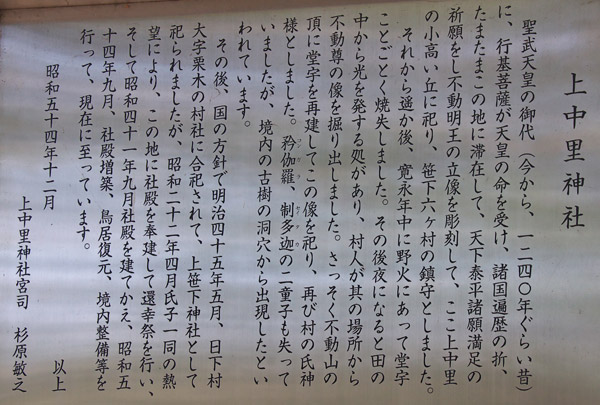 上中里神社
聖武天皇の御代（今から、一二四〇年ぐらい昔）
に、行基菩薩が天皇の命を受け、諸国遍歴の折、
たまたまこの地に滞在して、天下泰平諸願満足の
祈願をし不動明王の立像を彫刻して、ここ上中里
の小高い丘に祀り、笹下六ヶ村の鎮守としました。
それから遥か後、寛永年中に野火にあって堂宇
ことごとく焼失しました。その後夜になると田の
中から光を発する処があり、村人が其の場所から
不動尊の像を掘り出しました。さっそく不動山の
頂に堂宇を再建してこの像を祀り、再び村の氏神
様としました。矜伽羅、制多迦の二童子も失って
いましたが、境内の古樹の洞穴から出現したとい
われています。
その後、国の方針で明治四十五年五月、日下村
大字栗木の村社に合祀されて、上笹下神社として
祀られましたが、昭和二十二年四月氏子一同の熱
望により、この地に社殿を奉建して還幸祭を行い、
そして昭和四十一年九月社殿を建てかえ、昭和五
十四年九月、社殿増築、鳥居復元、境内整備等を
行って、現在に至っています。
以上
昭和五十四年十二月
上中里神社宮司 杉原敏之